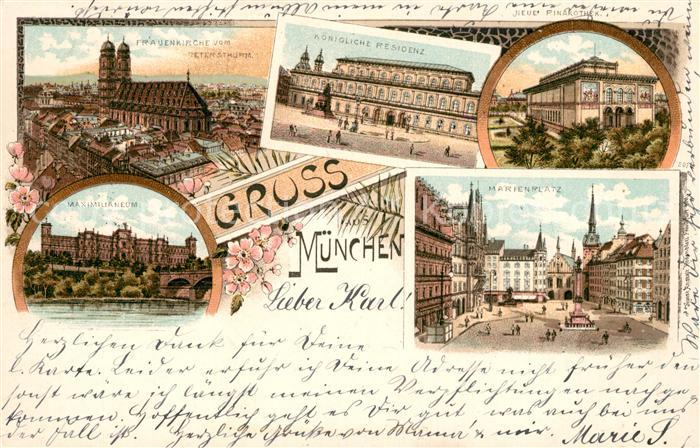 FRAUENKIRCHE VOM
PETERSTHURM.
KÖNIGLICHE RESIDENZ
NEUE PINAKOTHEK.
MAXIMILIANEUM
MARIENPLATZ
GRUSS
AUS
MÜNCHEN
Lieber Karl!
Herzlichen Dank für Deine
l. Karte. Leider erfuhr ich Deine Adresse nicht früher den
sonst wäre ich längst meinen Verpflichtungen nachge-
kommen. Hoffentlich geht es Dir gut, was auch bei uns
der Fall ist. Herzliche Grüße von Mama & mir. Marie S.